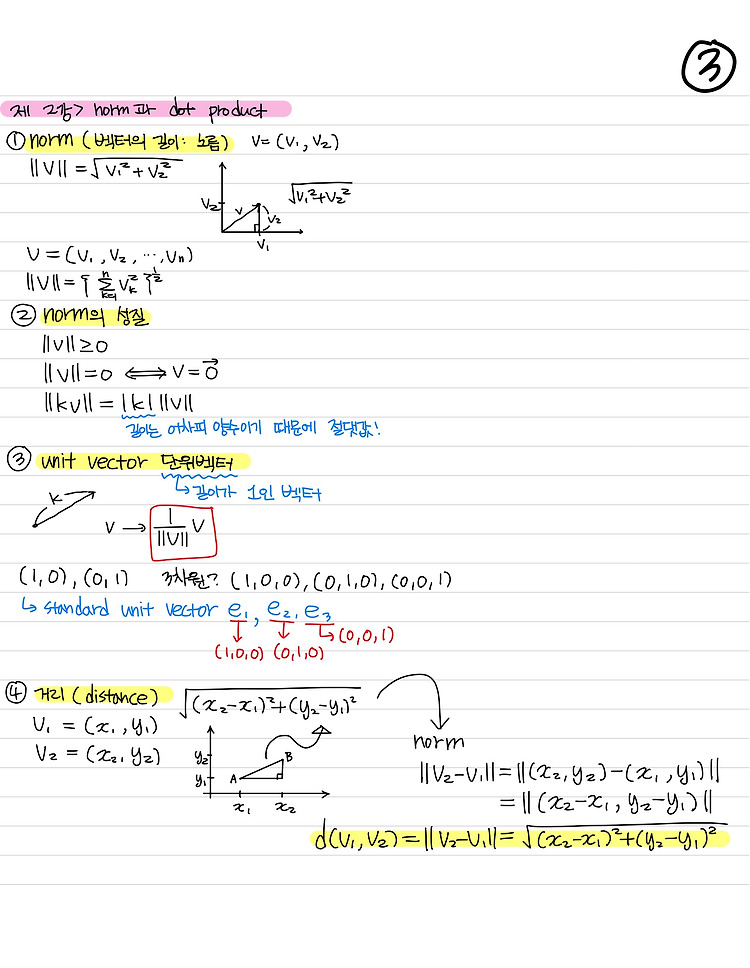 ③
제 2강> norm과 dot product
① norm (벡터의 길이: 노름) V=(V₁, V₂)
||V|| = √(V₁²+V₂²)
√(V₁²+V₂²)
V₂ V V₂
V₁
V = (V₁, V₂, ⋯, Vₙ)
||V|| = { Σₖ₌₁ⁿ Vₖ² }^½
② norm의 성질
||V|| ≥ 0
||V|| = 0 ⟺ V = 0⃗
||kV|| = |k| ||V||
길이는 어차피 양수이기 때문에 절댓값!
③ unit vector 단위벡터
↳ 길이가 1인 벡터
k
V → 1/||V|| V
(1,0), (0,1) 3차원? (1,0,0), (0,1,0), (0,0,1)
↳ standard unit vector e₁, e₂, e₃
↳ (0,0,1)
(1,0,0) (0,1,0)
④ 거리 (distance) √((x₂-x₁)²+(y₂-y₁)²)
V₁ = (x₁, y₁)
V₂ = (x₂, y₂)
y₂ B
y₁ A
x₁ x₂
norm
||V₂-V₁|| = ||(x₂,y₂)-(x₁,y₁)||
= ||(x₂-x₁, y₂-y₁)||
d(V₁,V₂) = ||V₂-V₁|| = √((x₂-x₁)²+(y₂-y₁)²)